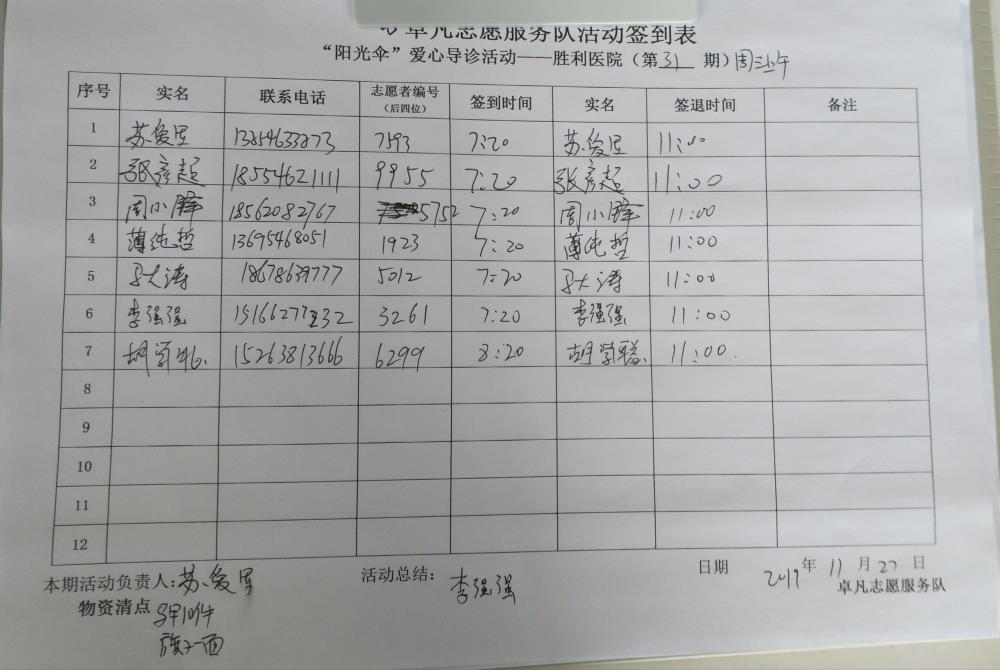 卓凡志愿服务队活动签到表
“阳光伞”爱心导诊活动——胜利医院（第31期）周三上午
序号 实名 联系电话 志愿者编号（后四位） 签到时间 实名 签退时间 备注
1 苏爱军 13854633873 7593 7:20 苏爱军 11:00
2 张彦起 18554621111 9955 7:20 张彦起 11:00
3 周小锋 18562082767 5752 7:20 周小锋 11:00
4 薄纯哲 13695468051 1923 7:20 薄纯哲 11:00
5 大涛 18678639777 5012 7:20 大涛 11:00
6 李强强 15166277232 3261 7:20 李强强 11:00
7 胡学聪 15263813666 6299 8:20 胡学聪 11:00.
8
9
10
11
12
本期活动负责人:苏爱军 活动总结: 李强强 日期 2019年11月20日
卓凡志愿服务队
物资清点 马甲10件
旗子一面